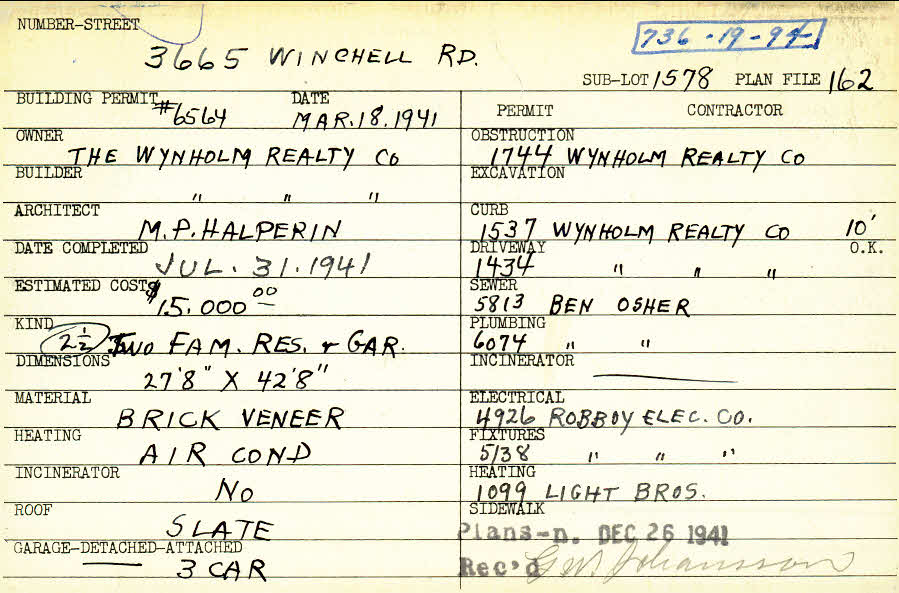 NUMBER-STREET
3665 WINCHELL RD.
736-19-94
SUB-LOT 1578 PLAN FILE 162
BUILDING PERMIT #6564 DATE MAR.18.1941
OWNER
THE WYNHOLM REALTY CO
BUILDER
" " "
ARCHITECT
M.P. HALPERIN
DATE COMPLETED
JUL. 31. 1941
ESTIMATED COST $15.000 00
KIND
2 1/2 TWO FAM. RES. & GAR.
DIMENSIONS
27'8" X 42'8"
MATERIAL
BRICK VENEER
HEATING
AIR COND
INCINERATOR
NO
ROOF
SLATE
GARAGE-DETACHED-ATTACHED
3 CAR
PERMIT CONTRACTOR
OBSTRUCTION
1744 WYNHOLM REALTY CO
EXCAVATION
CURB
1537 WYNHOLM REALTY CO 10'
DRIVEWAY O.K.
1434 " " "
SEWER
5813 BEN OSHER
PLUMBING
6074 " "
INCINERATOR
ELECTRICAL
4926 ROBBOY ELEC. CO.
FIXTURES
5138 " " "
HEATING
1099 LIGHT BROS.
SIDEWALK
Plans-n. DEC 26 1941
Rec'd G.W. Johansson